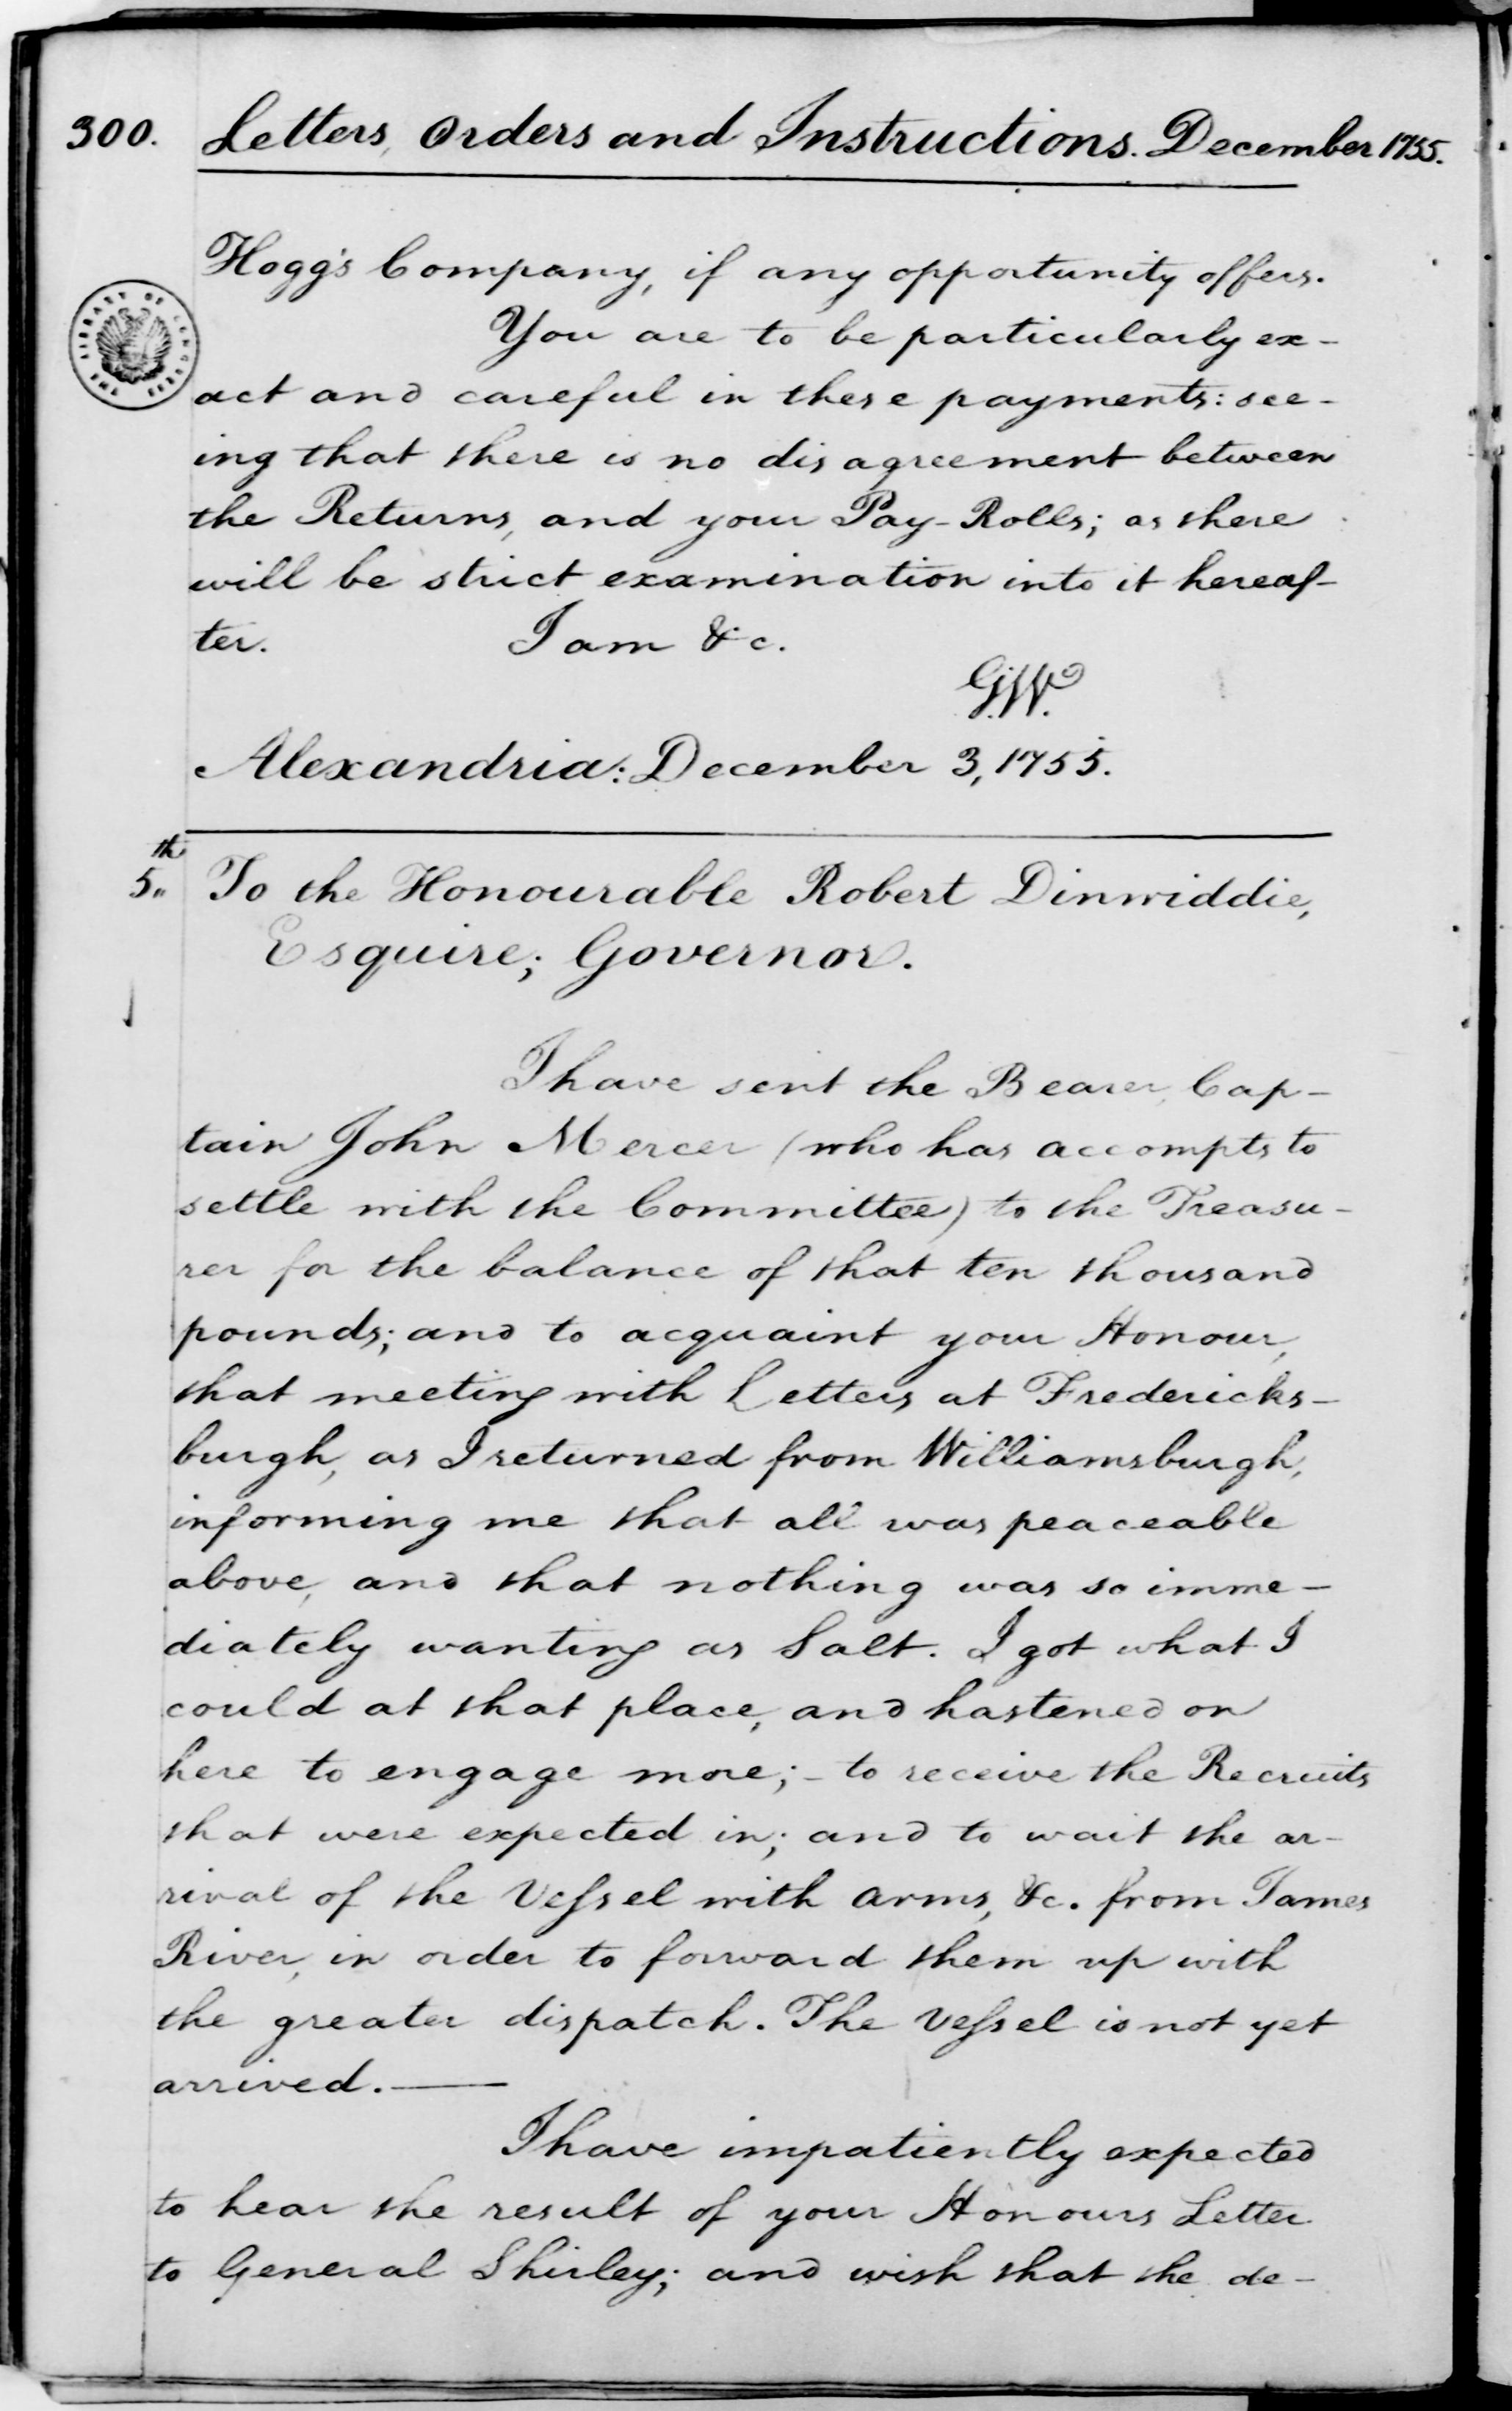 300. Letters, Orders and Instructions. December 1755.
Hogg's Company, if any opportunity offers.
You are to be particularly ex-
act and careful in these payments: see-
ing that there is no disagreement between
the Returns, and your Pay-Rolls; as there
will be strict examination into it hereaf-
ter. I am &c.
G.W.
Alexandria: December 3, 1755.
5th To the Honourable Robert Dinwiddie,
Esquire; Governor.
I have sent the Bearer, Cap-
tain John Mercer (who has accompts to
settle with the Committee) to the Treasu-
rer for the balance of that ten thousand
pounds; and to acquaint your Honour,
that meeting with Letters at Fredericks-
burgh, as I returned from Williamsburgh,
informing me that all was peaceable
above, and that nothing was so imme-
diately wanting as Salt. I got what I
could at that place, and hastened on
here to engage more; - to receive the Recruits
that were expected in; and to wait the ar-
rival of the Vessel with arms, &c. from James
River, in order to forward them up with
the greater dispatch. The Vessel is not yet
arrived. —
I have impatiently expected
to hear the result of your Honours Letter
to General Shirley; and wish that the de-
THE LIBRARY OF CONGRESS